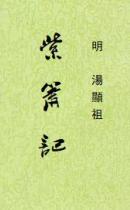 明 湯顯祖
紫簫記